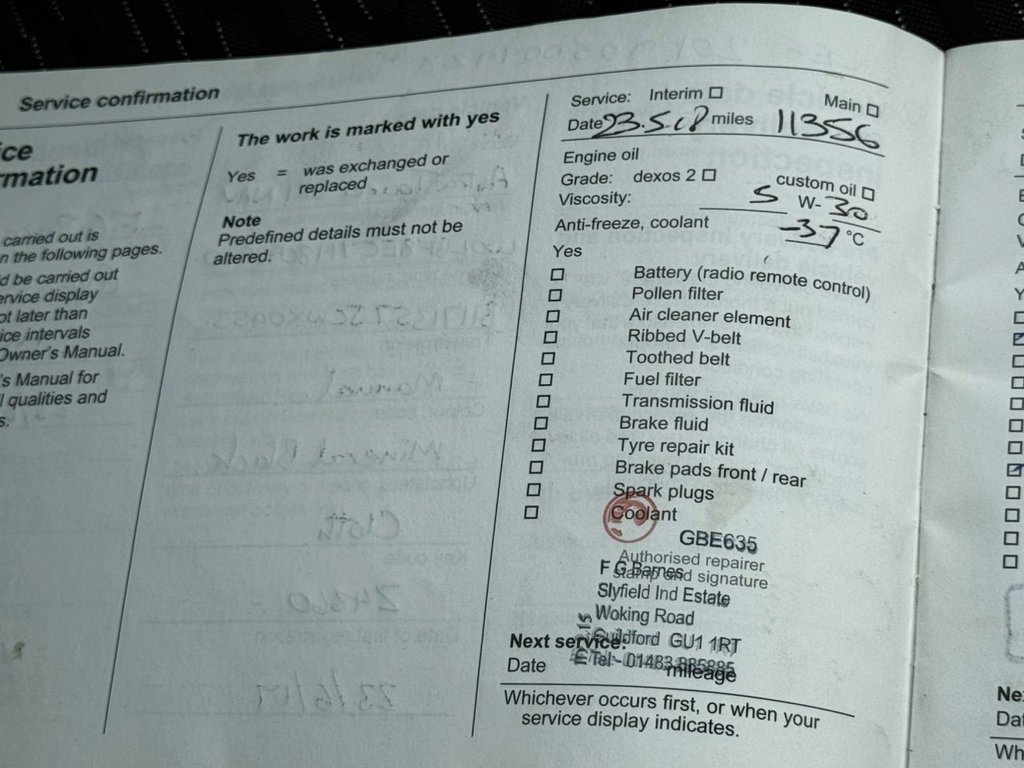 Service confirmation
ice
rmation
carried out is
n the following pages.
d be carried out
ervice display
ot later than
ice intervals
Owner's Manual.
's Manual for
l qualities and
s.
The work is marked with yes
Yes = was exchanged or
replaced
Note
Predefined details must not be
altered.
Service: Interim ☐ Main ☐
Date 23.5.18 miles 11356
Engine oil
Grade: dexos 2 ☐ custom oil ☐
Viscosity: 5 W- 30
Anti-freeze, coolant -37 °C
Yes
☐ Battery (radio remote control)
☐ Pollen filter
☐ Air cleaner element
☐ Ribbed V-belt
☐ Toothed belt
☐ Fuel filter
☐ Transmission fluid
☐ Brake fluid
☐ Tyre repair kit
☐ Brake pads front / rear
☐ Spark plugs
☐ Coolant
GBE635
Authorised repairer
stamp and signature
F G Barnes
Slyfield Ind Estate
Woking Road
Guildford GU1 1RT
Tel:- 01483 885885
Next service:
Date mileage
Whichever occurs first, or when your
service display indicates.
Ne
Dat
Wh